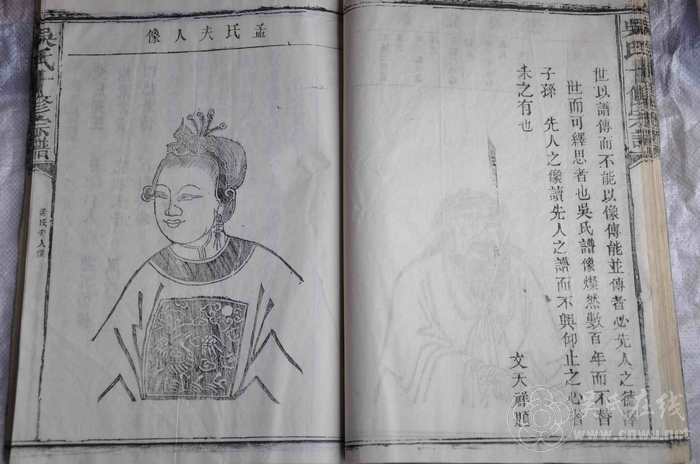 吳氏十修宗譜
世以譜傳而不能以像傳能並傳者必先人之德
世而可繹思者也吳氏譜像燦然數百年而不替
子孫 先人之像讀先人之譜而不興仰止之心者
未之有也
文天祥題
孟氏夫人像
吳氏十修宗譜
氏夫人像
吴氏在线
www.cnwu.com